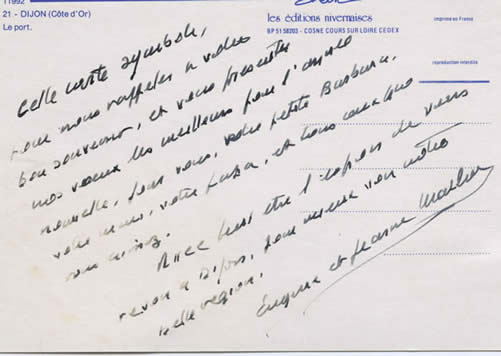 11992
21 - DIJON (Côte d'Or)
Le port.
les éditions nivernaises
BP 51 58203 - COSNE COURS SUR LOIRE CEDEX
imprimé en France
reproduction interdite
Cette carte symbole,
pour nous rappeler à votre
bon souvenir, et vous présenter
nos voeux les meilleurs pour l'année
nouvelle, pour vous, votre petite Barbara,
votre mari, votre, et tous ceux que
vous aimez.
Avec peut être l'espoir de vous
revoir à Dijon, pour mieux voir notre
belle région.
Eugène et Jeanne